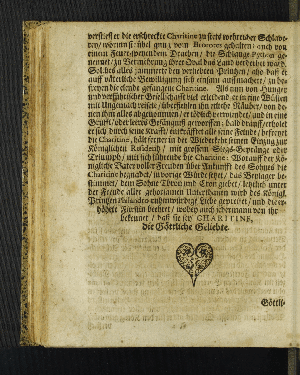 verstieß er die erschreckte Charitine zu stets wehrender Schlave-
rey/ worinn sie übel gnug vom gehalten; auch von
einem Feuer-speienden Drachen/ die Schlange Python ge-
nennet/ zu Bewachung
Sol-
auff väterliche Bewilligung sich einsam auffmachet/ zu be-
freyen die elende gefangene Charitine. Als nun von Hunger
und verführischer Gesellschafft viel erleidend/ er in eine Wüsten
mit Ungemach reisete/ überfielen ihn etliche Räuber/ von de-
nen ihm alles abgenommen/ er tödlich verwundet/ und in eine
Grufft/ oder leeres Gefängnüß geworffen: bald drauff erholet
er sich durch seine Krafft/ entkräfftet alle seine Feinde/ befreyet
die Charitine/ hält ferner in der Widerkehr seinen Einzug zur
Königlichen Residentz/ mit grossem Sieges-Gepränge oder
Triumph/ mit sich führende die Charitine: Worauff der Kö-
nigliche Vater voller Freuden über Ankunfft des Sohnes die
Charitine begnadet/ in vorige Würde setzet/ das Beilager be-
stimmet/ dem Sohne Thron und Cron giebet/ letzlich unter
der Freude aller gehorsamen Unterthanen wird des Königl.
Printzen Philanders ruhmwürdigste Liebe gepreiset/ und die er-
höhete Fürstin beehret/ wobey auch jederman von ihr
bekennet/ daß sie sey CHARITINE,
die Göttliche Geliebte.
Göttli-